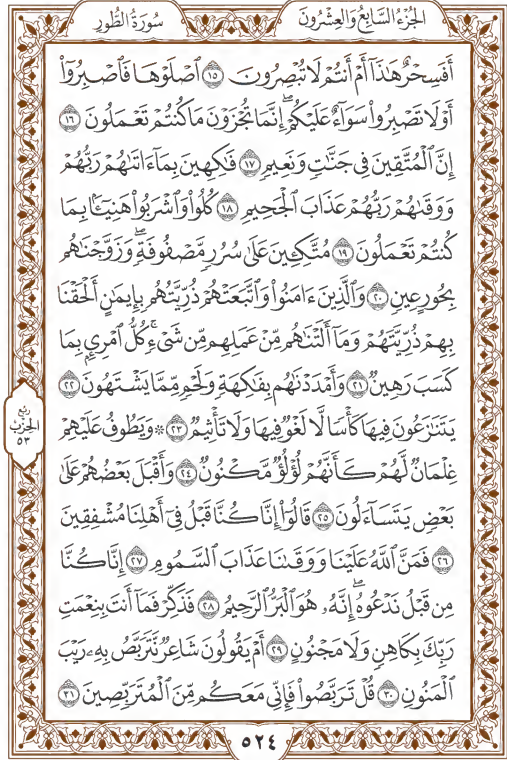 الجُزْءُ السَّابِعُ وَالعِشْرُونَ
سُورَةُ الطُّورِ
أَفَسِحْرٌ هَٰذَآ أَمْ أَنتُمْ لَا تُبْصِرُونَ ١٥ ٱصْلَوْهَا فَٱصْبِرُوٓا۟
أَوْ لَا تَصْبِرُوا۟ سَوَآءٌ عَلَيْكُمْ ۖ إِنَّمَا تُجْزَوْنَ مَا كُنتُمْ تَعْمَلُونَ ١٦
إِنَّ ٱلْمُتَّقِينَ فِى جَنَّٰتٍ وَنَعِيمٍ ١٧ فَٰكِهِينَ بِمَآ ءَاتَىٰهُمْ رَبُّهُمْ
وَوَقَىٰهُمْ رَبُّهُمْ عَذَابَ ٱلْجَحِيمِ ١٨ كُلُوا۟ وَٱشْرَبُوا۟ هَنِيٓـًٔۢا بِمَا
كُنتُمْ تَعْمَلُونَ ١٩ مُتَّكِـِٔينَ عَلَىٰ سُرُرٍ مَّصْفُوفَةٍ ۖ وَزَوَّجْنَٰهُم
بِحُورٍ عِينٍ ٢٠ وَٱلَّذِينَ ءَامَنُوا۟ وَٱتَّبَعَتْهُمْ ذُرِّيَّتُهُم بِإِيمَٰنٍ أَلْحَقْنَا
بِهِمْ ذُرِّيَّتَهُمْ وَمَآ أَلَتْنَٰهُم مِّنْ عَمَلِهِم مِّن شَىْءٍ ۚ كُلُّ ٱمْرِئٍۭ بِمَا
كَسَبَ رَهِينٌ ٢١ وَأَمْدَدْنَٰهُم بِفَٰكِهَةٍ وَلَحْمٍ مِّمَّا يَشْتَهُونَ ٢٢
يَتَنَٰزَعُونَ فِيهَا كَأْسًا لَّا لَغْوٌ فِيهَا وَلَا تَأْثِيمٌ ٢٣ ۞ وَيَطُوفُ عَلَيْهِمْ
غِلْمَانٌ لَّهُمْ كَأَنَّهُمْ لُؤْلُؤٌ مَّكْنُونٌ ٢٤ وَأَقْبَلَ بَعْضُهُمْ عَلَىٰ
بَعْضٍ يَتَسَآءَلُونَ ٢٥ قَالُوٓا۟ إِنَّا كُنَّا قَبْلُ فِىٓ أَهْلِنَا مُشْفِقِينَ
٢٦ فَمَنَّ ٱللَّهُ عَلَيْنَا وَوَقَىٰنَا عَذَابَ ٱلسَّمُومِ ٢٧ إِنَّا كُنَّا
مِن قَبْلُ نَدْعُوهُ ۖ إِنَّهُۥ هُوَ ٱلْبَرُّ ٱلرَّحِيمُ ٢٨ فَذَكِّرْ فَمَآ أَنتَ بِنِعْمَتِ
رَبِّكَ بِكَاهِنٍ وَلَا مَجْنُونٍ ٢٩ أَمْ يَقُولُونَ شَاعِرٌ نَّتَرَبَّصُ بِهِۦ رَيْبَ
ٱلْمَنُونِ ٣٠ قُلْ تَرَبَّصُوا۟ فَإِنِّى مَعَكُم مِّنَ ٱلْمُتَرَبِّصِينَ ٣١
رُبْع
الحِزْبِ
٥٣
٥٢٤